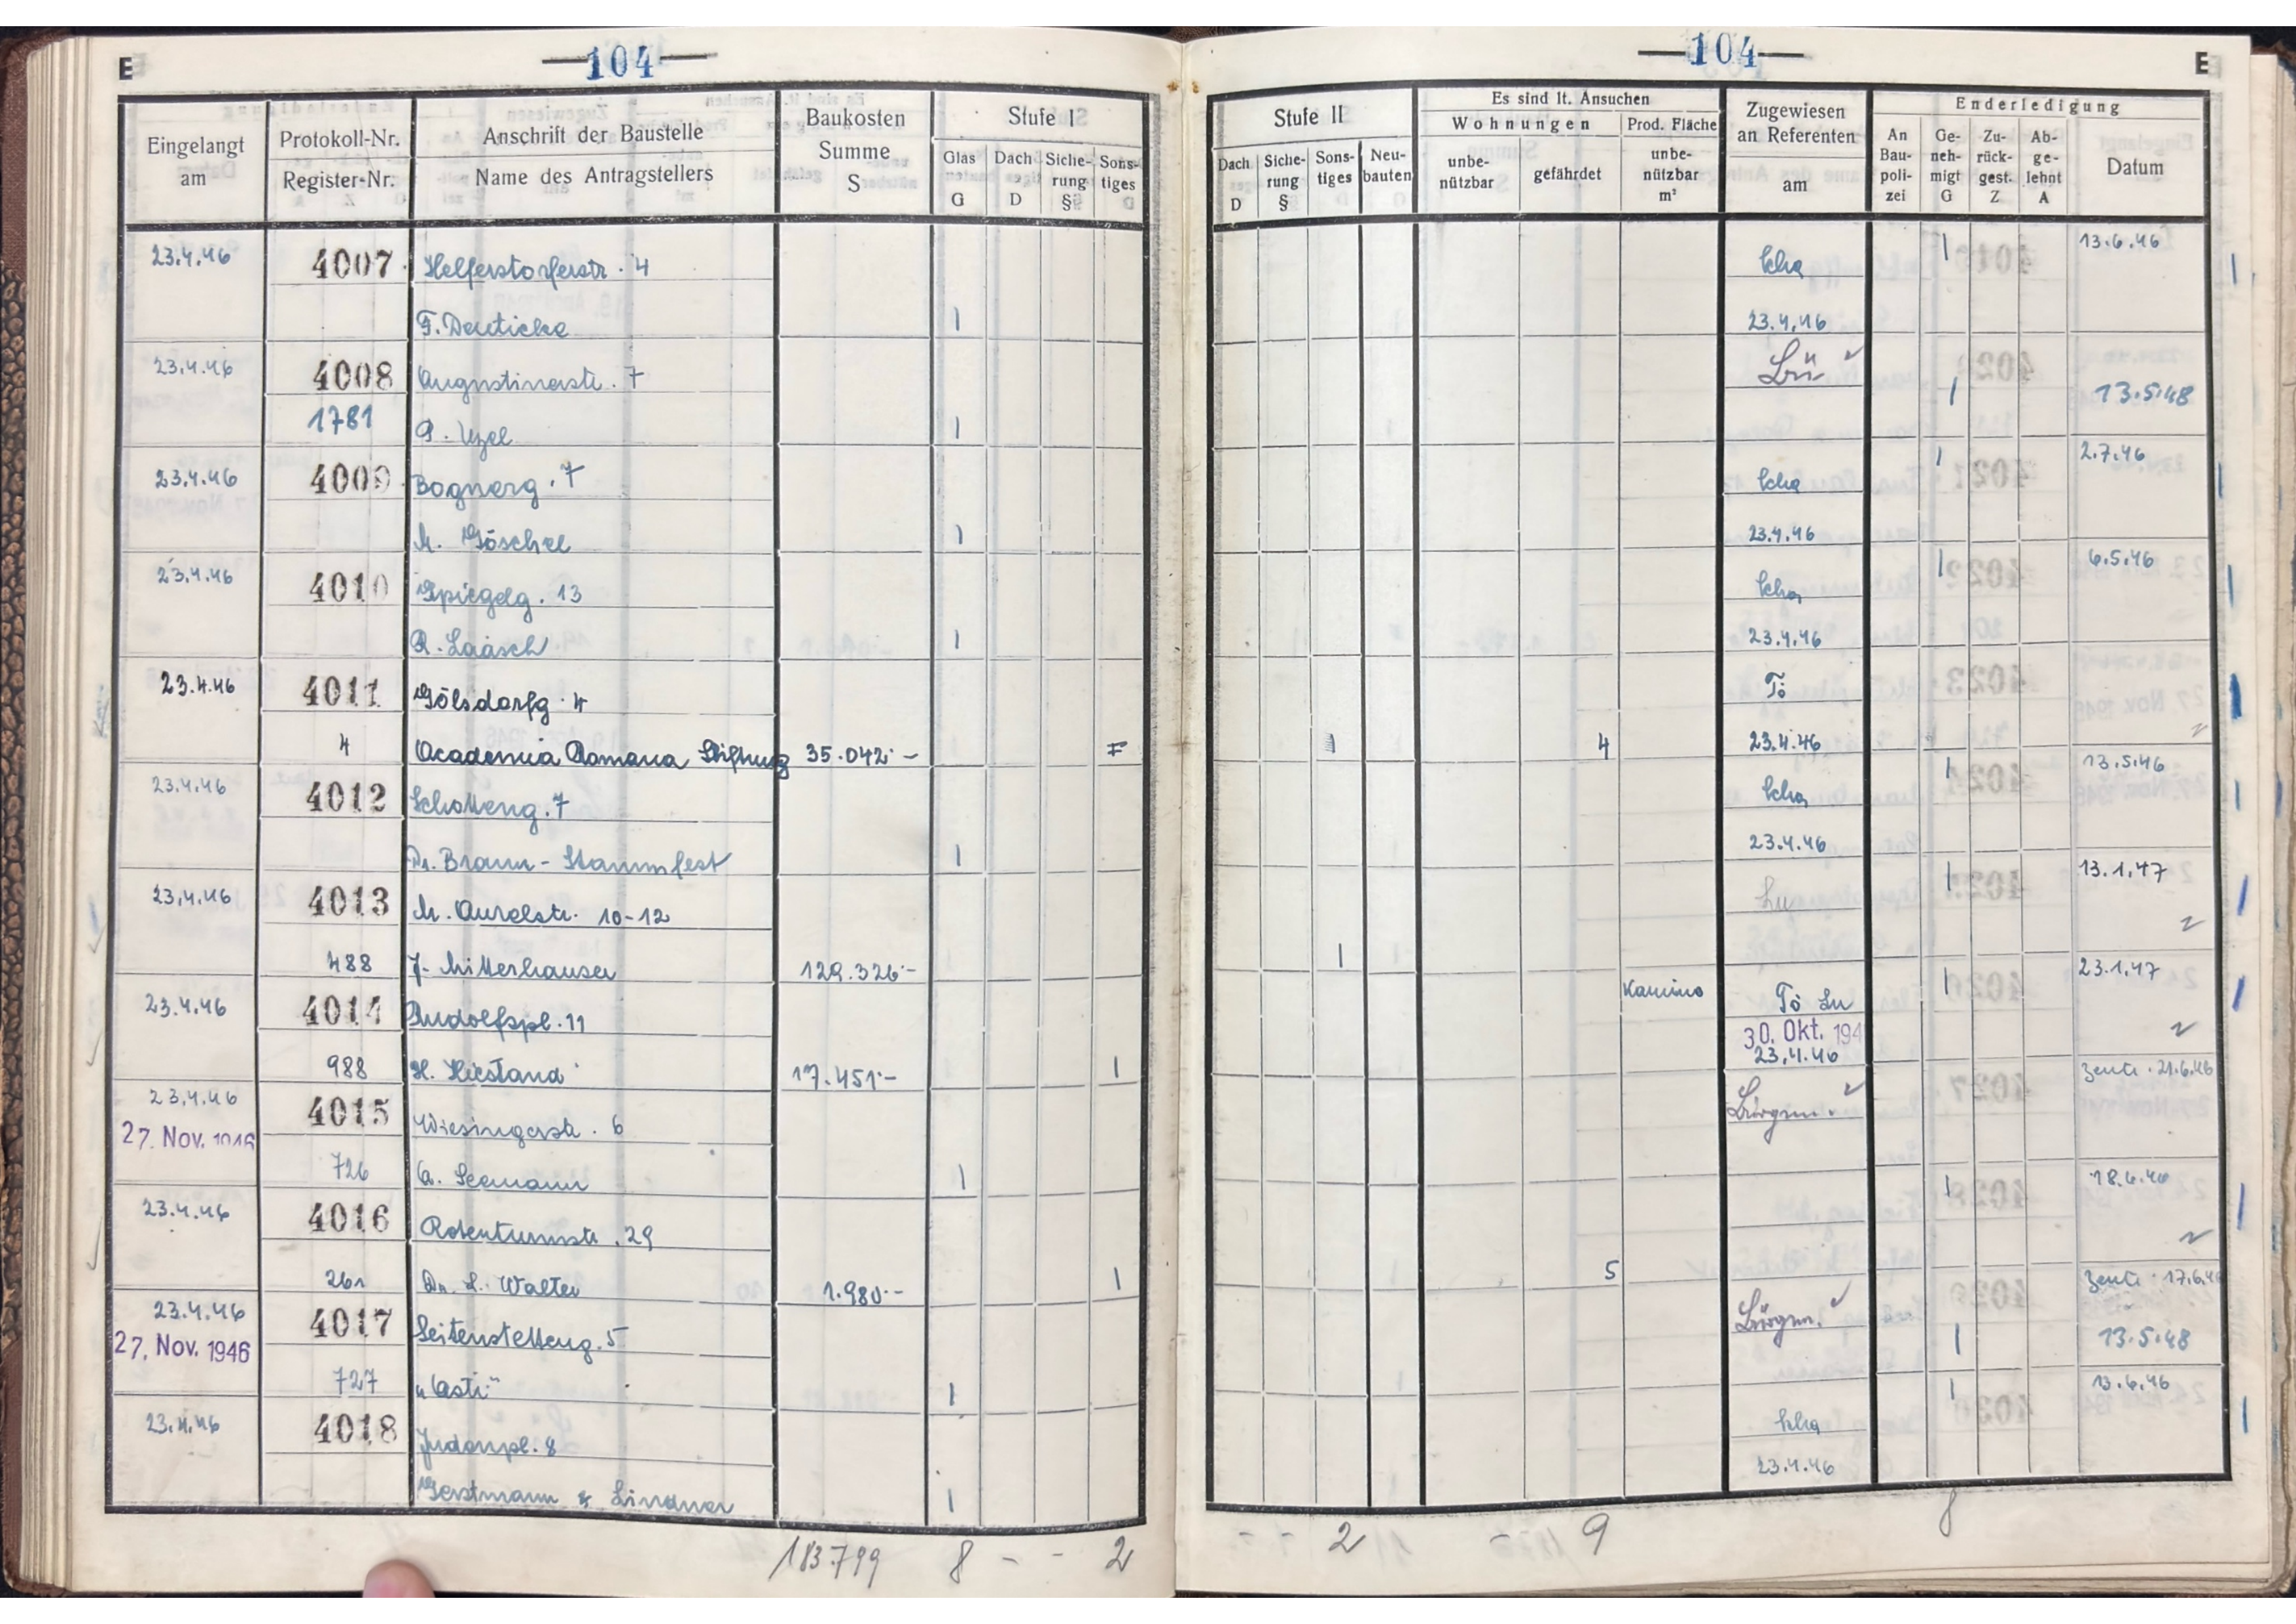 E
—104—
—104—
E
Eingelangt am
Protokoll-Nr.
Register-Nr.
Anschrift der Baustelle
Name des Antragstellers
Baukosten Summe S
Stufe I
Glas G
Dach D
Siche- rung §
Sons- tiges
Stufe II
Dach D
Siche- rung §
Sons- tiges
Neu- bauten
Es sind lt. Ansuchen
Wohnungen
unbe- nützbar
gefährdet
Prod. Fläche
unbe- nützbar m²
Zugewiesen an Referenten am
Enderledigung
An Bau- poli- zei
Ge- neh- migt G
Zu- rück- gest. Z
Ab- ge- lehnt A
Datum
23.4.46 4007 Helferstorferstr. 4 Scha 1 13.6.46
F. Deuticke 1 23.4.46
23.4.46 4008 Augustinerstr. 7 Lü
1781 1 1 13.5.48
23.4.46 4009 Bognerg. 7 Scha 1 2.7.46
M. Göschel 1 23.4.46
23.4.46 4010 Spiegelg. 13 Scha 1 6.5.46
R. Laasch 1 23.4.46
23.4.46 4011 Gölsdorfg. 4 Tö
4 Academia Romana Stiftung 35.042.- 1 4 23.4.46
23.4.46 4012 Schotteng. 7 Scha 1 13.5.46
Dr. Braun-Stammfest 1 23.4.46
23.4.46 4013 M. Aurelstr. 10-12 Lu 1 13.1.47
488 J. Mitterhauser 129.326.- 1
23.4.46 4014 Rudolfspl. 11 Kamine Tö Lu 1 23.1.47
30. Okt. 194
988 H. Hiestand 17.451.- 1 23.4.46
23.4.46 4015 Wiesingerstr. 6 21.6.46
27. Nov. 1946
726 A. Seemann 1
23.4.46 4016 Rotenturmstr. 29 1 18.6.46
261 Dr. L. Walter 1.980.- 1 5
23.4.46 4017 Seitenstetteng. 5 17.6.46
27. Nov. 1946 1 13.5.48
727 "Asti" 1
23.4.46 4018 Judenpl. 8 Scha 1 13.6.46
Gerstmann & Lindner 1 23.4.46
183.799 8 - - 2 - - 2 - 9 8